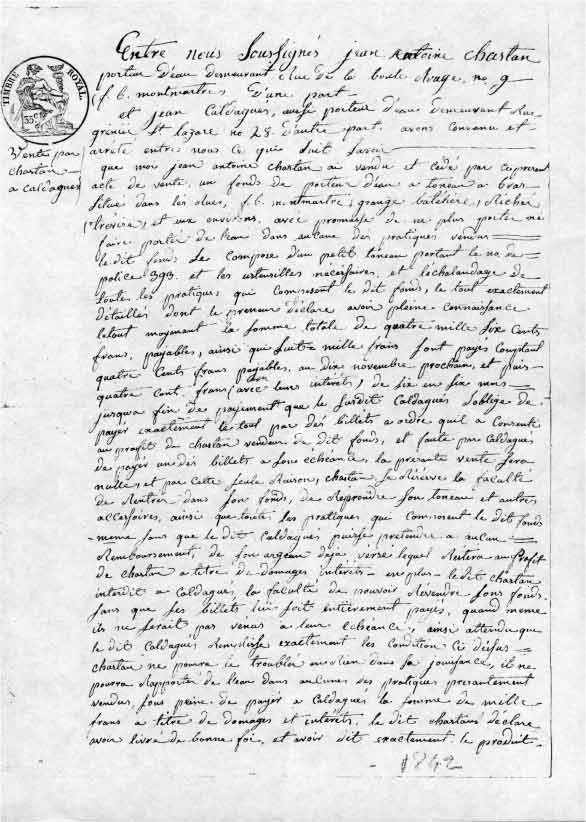 TIMBRE ROYAL
35c
Vente par
chastan
a caldagues
Entre nous Soussignés jean Antoine chastan
porteur d'eau demeurant Rue de la boule Rouge, no. 9
(f. b. montmartre) D'une part
et jean Caldagues, aussi porteur d'eau demeurant Rue
grénier St lazare no 28. d'autre part. avons convenu et
arrêté entre nous ce qui suit savoir
que moi jean antoine chastan a vendu et cédé par ce présent
acte de vente, un fonds de porteur d'eau a toneau a bras
situé dans les Rues, f. b. montmartre, grange batelière, Richer
trévise, et aux environs, avec promesse de ne plus porter ne
faire porter de l'eau dans aucune des pratiques vendus
le dit fonds Se Compose d'un petit toneau portant le no de
police 393. et les ustensilles nécessaires, et l'echalandage de
toutes les pratiques, qui composent le dit fonds, le tout exactement
détaillés dont le preneur déclare avoir pleine connaissance
le tout moyenant la somme totale de quatre mille six Cents
frans, payables, ainsi que suit mille frans sont payés Comptant
quatre Cents frans payables, au dix novembre prochain, et puis
quatre Cent frans (avec leurs intérêts) de six en six mois
jusqu'a fin de payement que le susdit Caldagues s'oblige de
payer exactement le tout par des billets a ordre qu'il a Consenti
au profit de chastan vendeur de dit fonds, et faute par Caldagues
de payer un des billets a son échéance, la présente vente sera
nulle, et par cette seule Raison, chastan, se Réserve la faculté
de Rentrer dans son fonds, de Reprendre son toneau et autres
accessoires, ainsi que toutes les pratiques qui composent le dit fonds
meme sans que le dit Caldagues puisse prétendre a aucun
Remboursement, de son argean déjà versé lequel Restera au Profit
de chastan a titre de domages intérêts - en plus - le dit chastan
interdit a Caldagues, la faculté de pouvoir Revendre Sons fonds.
sans que ses billets lui soit entièrement payés, quand meme
ils ne serait pas venus a leur échéance, ainsi attendu que
le dit Caldagues Remplisse exactement les Condition Ci désus
chastan ne poura le troubler en rien dans sa jouissance, il ne
poura Rapporter de l'eau dans aucunes des pratiques presantement
vendus, sous peine de payer a Caldagues la somme de mille
frans a titre de domages et intérêts, le dit chastans déclare
avoir livré de bonne foi, et avoir dit exactement le produit
1842